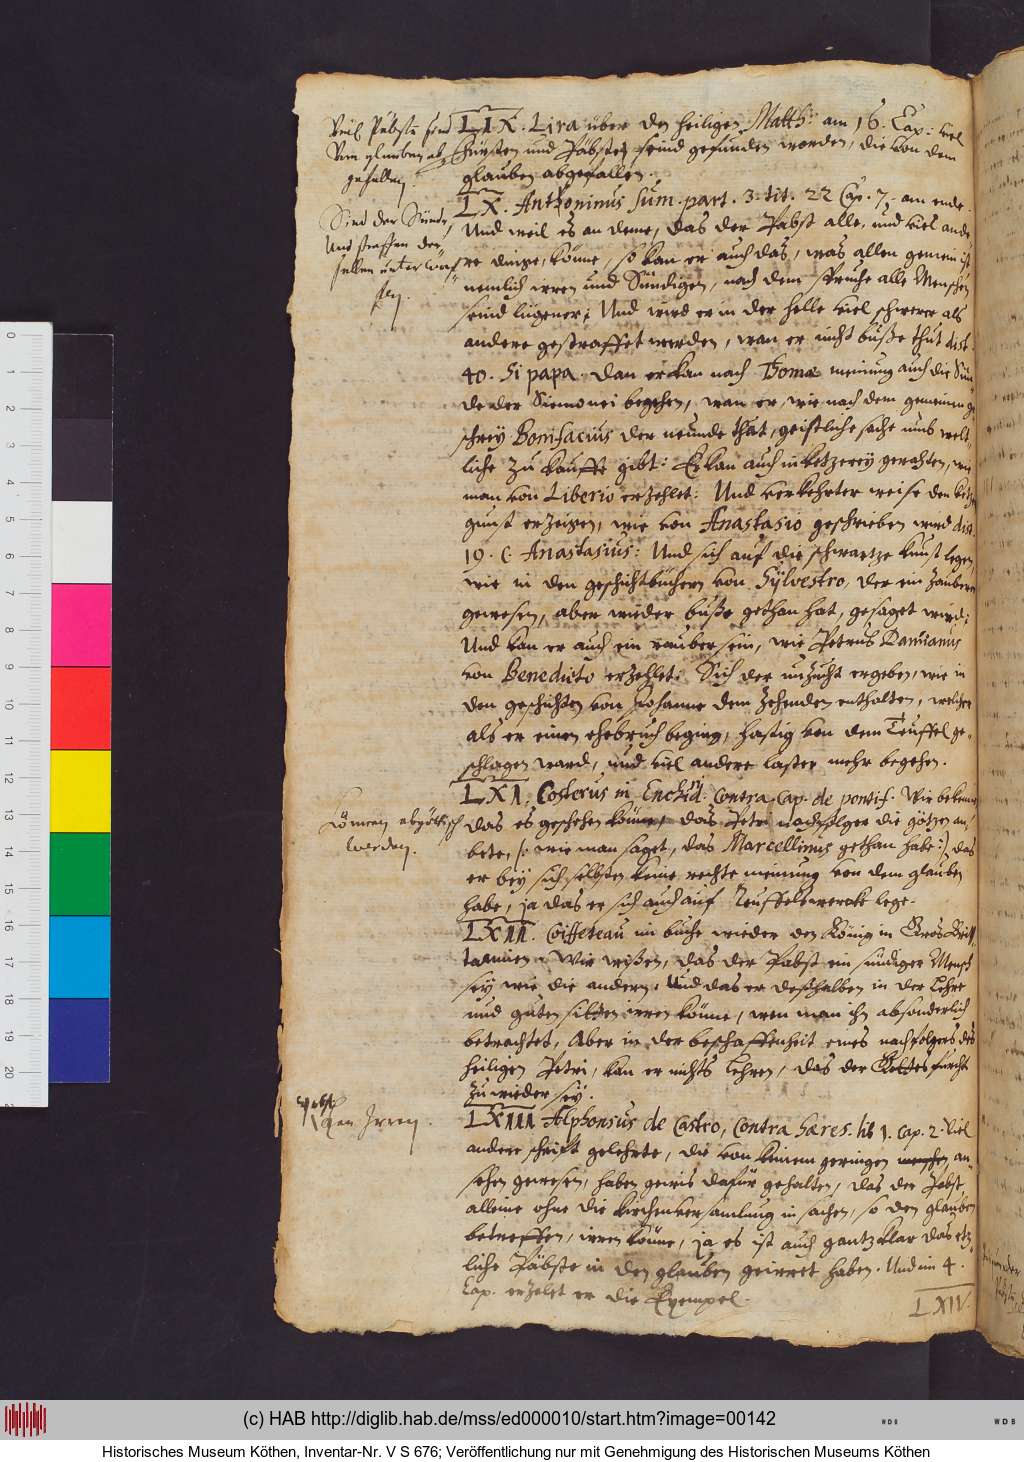 Viel Päbste seind
Vom glauben ab
gefallen.
LIX. Lira über den heiligen Matth: am 16. Cap: viel
Fürsten und Päbste seind gefunden worden, die von dem
glauben abgefallen.
Sind der Sünde
Und straffen der
selben unterworf
fen.
LX. Anthoninus Sum. part. 3. tit. 22 Cap. 7. am ende.
Und weil es an deme, das der Pabst alle, und viel ande
re dinge, könne, so kan er auch das, was allen gemein ist
nemlich irren und Sündigen, nach dem spruche alle Menschen
seind lügener; Und wird er in der helle viel schwerer als
andere gestraffet werden, wan er nicht buße thut dist.
40. Si papa. dan er kan nach Thomæ meinung auch die Sün
de der Siemonei begehen, wan er, wie nach dem gemeinen ge
schrey Bonifacius der neunde that, geistliche sache umb welt
liche zu kauffe gibt: Er kan auch in ketzerey gerahten, wie
man von Liberio erzehlet: Und verkehrter weise den ketze
gunst erzeigen, wie von Anastasio geschrieben wird dist.
19. C. Anastasius: Und sich auf die schwartze kunst legen,
wie in den geschichtbüchern von Sylvestro, der ein Zauberer
gewesen, aber wieder buße gethan hat, gesaget wird;
Und kan er auch ein rauber sein, wie Petrus Damianus
von Benedicto erzehlet: Sich der unzucht ergeben, wie in
den geschichten von Johanne dem Zehenden enthalten, welcher
als er einen ehebruch beging, hastig von dem Teuffel ge-
schlagen ward, und viel andere laster mehr begehen.
Können abgöttisch
werden.
LXI. Costerus in Enchid. contra cap. de pontif. Wir bekennen
das es geschehen könne, das Petri nachfolger die götzen an,
bete, (: wie man saget, das Marcellinus gethan habe:) das
er bey sich selbsten keine rechte meinung von dem glauben
habe, ja das er sich auch auf Teuffelswercke lege.
LXII. Coiffeteau im buche wieder den König in Gros Brit
tannien. Wir wißen, das der Pabst ein sündiger Mensch
sey wie die andern, Und das er deshalben in der Lehre
und guten sitten irren könne, wen man ihn absonderlich
betrachtet, Aber in der beschaffenheit eines nachfolgers des
heiligen Petri, kan er nichts Lehren, das der Gottesfurcht
zuwieder sey.
Pebste
Können Irren.
LXIII Alphonsus de Castro, Contra hæres. lib 1. cap. 2. Viel
andere schrift gelehrte, die von keinem geringen an-
sehen gewesen, haben gewis dafür gehalten, das der Pabst
alleine ohne die kirchenversamlung in sachen, so den glauben
betreffen, irren könne, ja es ist auch gantz klar das etz-
liche Päbste in den glauben geirret haben. Und im 4.
Cap. erzelet er die Exempel.
LXIV.
(c) HAB http://diglib.hab.de/mss/ed000010/start.htm?image=00142
WDB
WDB
Historisches Museum Köthen, Inventar-Nr. V S 676; Veröffentlichung nur mit Genehmigung des Historischen Museums Köthen